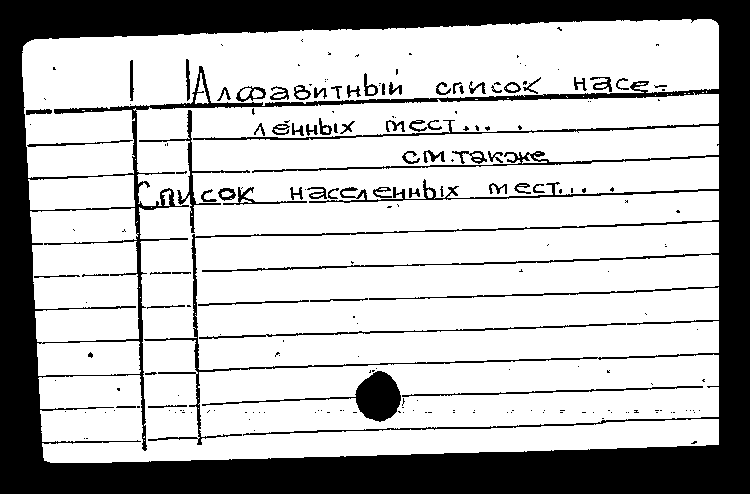 Алфавитный список насе-
ленных мест... .
см. также
Список населенных мест... .